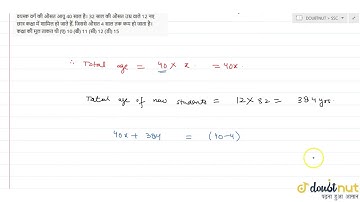 वयस्क वर्ग की औसत आयु 40 साल है। 32 साल की औसत उम्र वाले 12 नए
छात्र कक्षा में शामिल हो जाते हैं, जिससे औसत 4 साल तक कम हो जाता है।
कक्षा की मूल ताकत थी (ए) 10 (बी) 11 (सी) 12 (डी) 15
DOUBTNUT - SSC
∴ Total age = 40 × x = 40x.
Total age of new students = 12 × 32 = 384 yrs.
40x + 384 = (40-4)
doubtnut
पढ़ना हुआ आसान